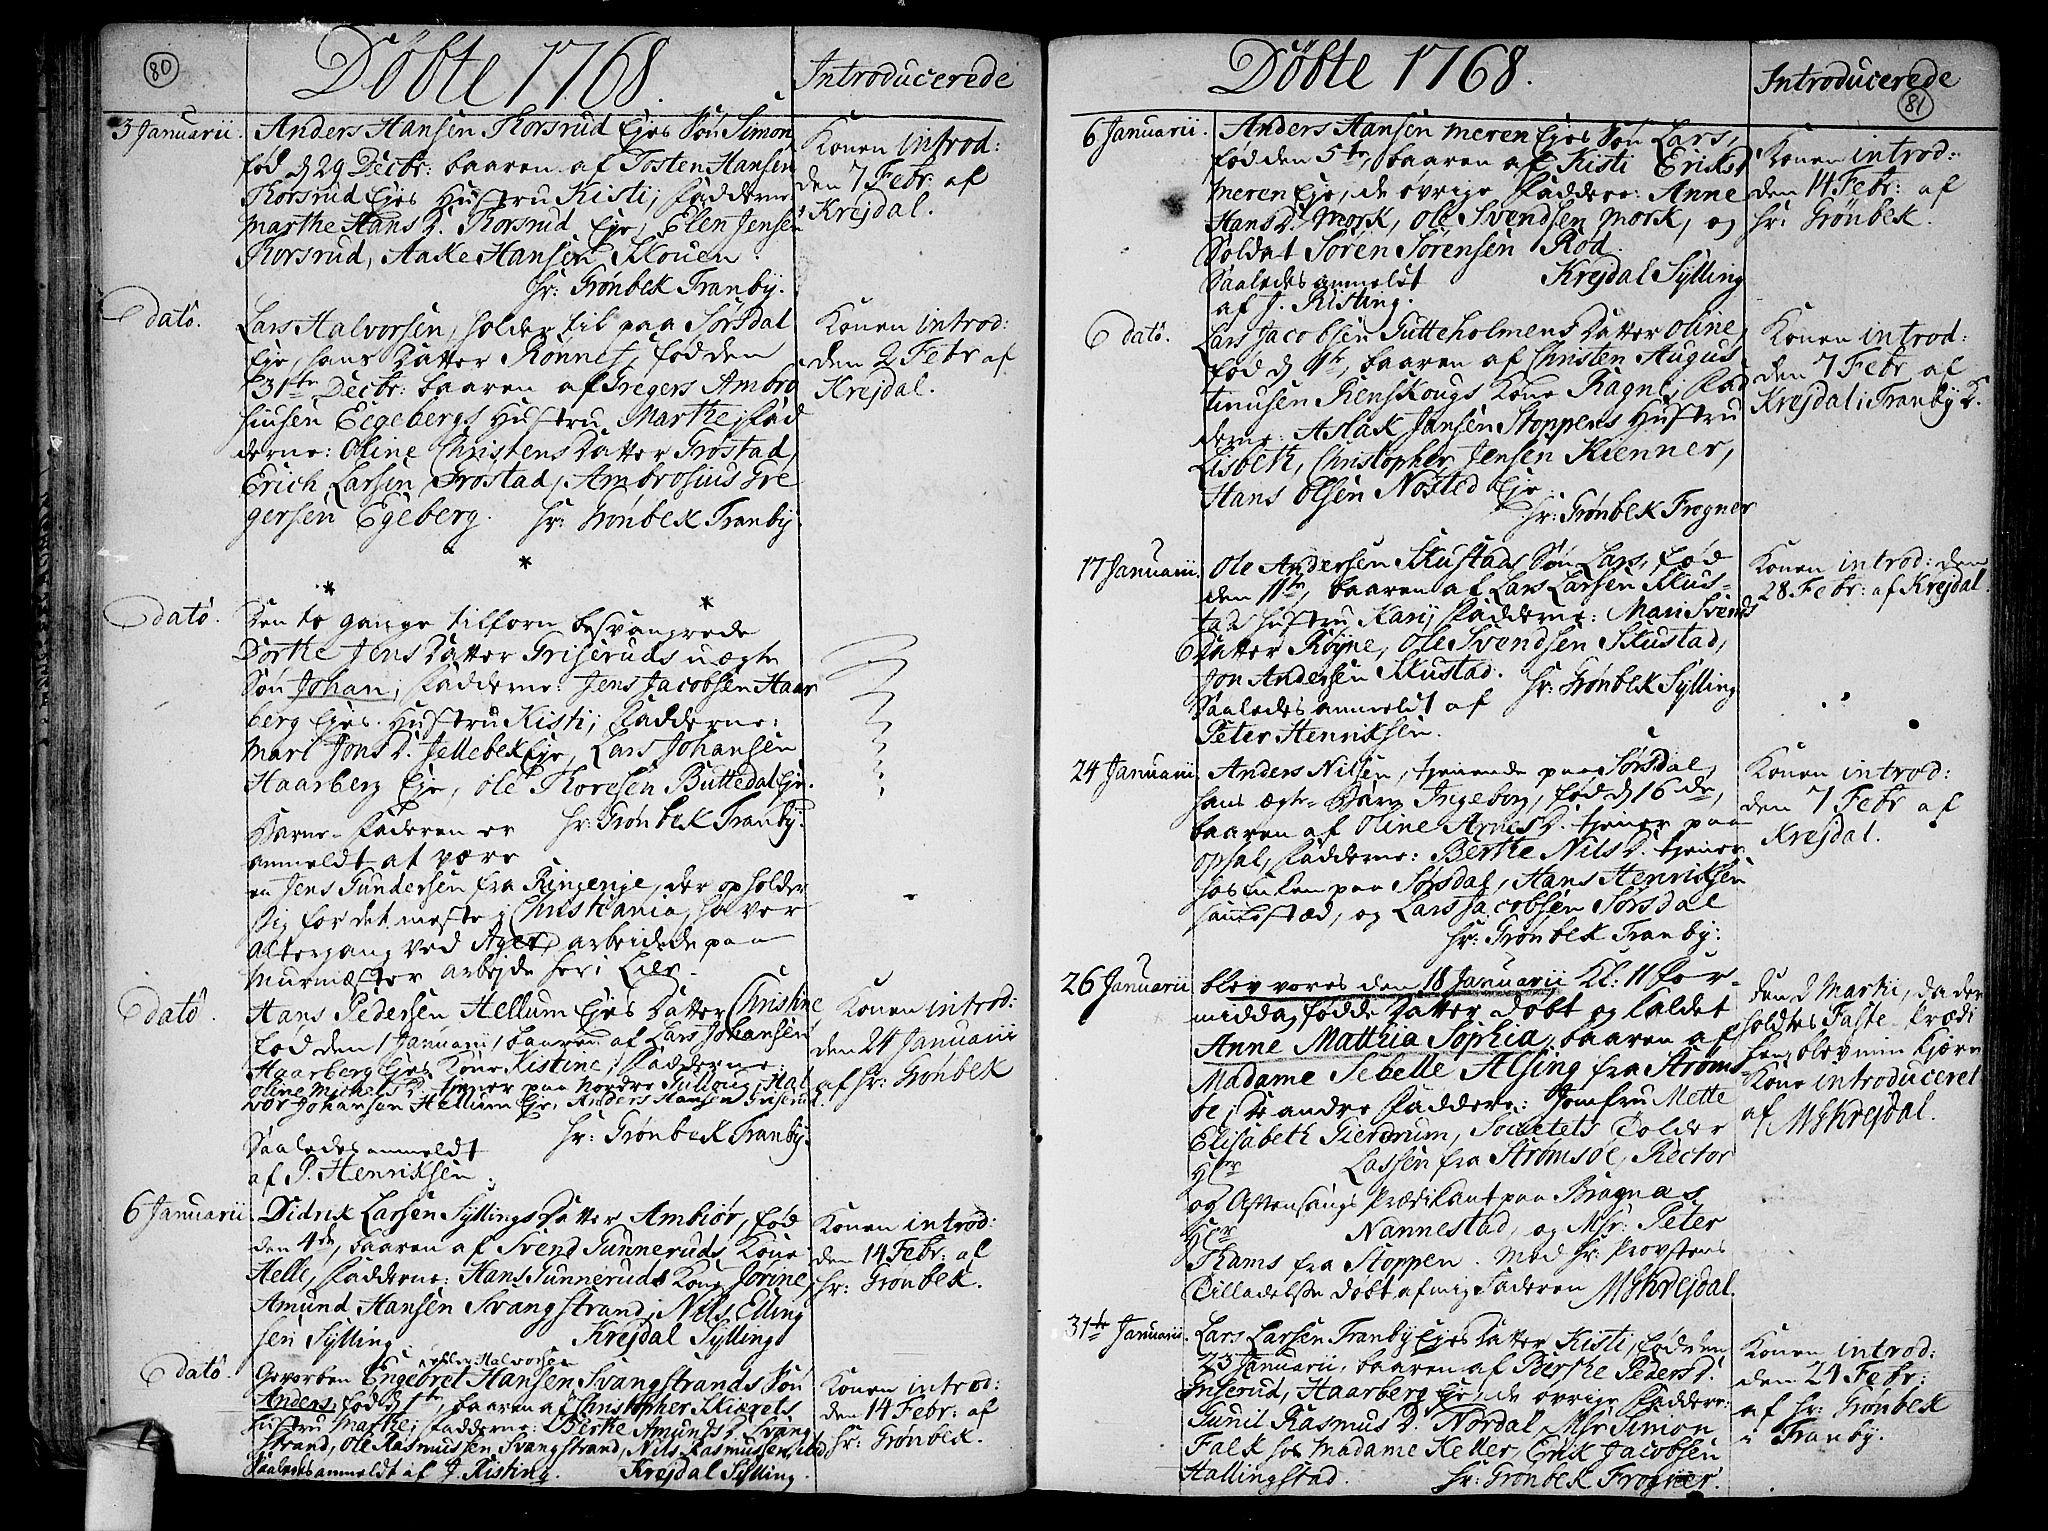 80
Döbte 1768.
Introducerede
3 Januarii. Anders Hansen Korsrud Ejes Søn Simon
fød d 29 Decbr: baaren af Tosten Hansen
Korsrud Ejes Hustru Kisti, Fadderne
Marthe Hans D. Korsrud Eje, Elen Jensen
Korsrud, Aake Hansen Klouen.
hr: Grönbek Tranby.
Konen introd:
den 7 Febr: af
Krejdal.
dato. Lars Halvorsen, holder til paa Sörsdal
Eje, hans Datter Rönnef, fød den
31te Decbr: baaren af Gregers Ambro
siusen Eegebergs Hustru Marthe, Fad
derne: Oline Christens Datter Grostad,
Erich Larsen Grostad, Ambrosius Gre
gersen Egeberg. hr: Grönbek Tranby.
Konen introd:
den 2 Febr af
Krejdal.
dato. Den to gange tilforn besvangrede
Dorthe Jens Datter Griseruds uægte
Søn Johan, Fadderne: Jens Jacobsen Haar
berg Ejes Hustru Kisti; Fadderne:
Mari Jons D. Jellebek Eje, Lars Johansen
Haarberg Eje, Ole Thoresen Buttedal Eje.
Barne-Faderen er hr: Grönbek Tranby.
anmeldt at være
en Jens Gundersen fra Ringerije, der opholder
sig for det meste i Christiania, haver
Altergang ved Ager, arbeidede paa
Murmæster arbejde her i Lier.
dato. Hans Pedersen Hellum Ejes Datter Christine
fød den 1 Januarii, baaren af Lars Johansen
Haarberg Ejes Kone Kistine; Fadderne:
Oline Michels D. tjener paa Nordre Gulloug, Hal
vor Johansen Hellum Eje, Anders Hansen Griserud.
hr: Grönbek Tranby.
Saaledes anmeldt
af P. Henriksen.
Konen introd:
den 24 Januarii
af hr: Grönbek
6 Januarii Didrik Larsen Syllings Datter Ambiør, fød
den 4de, baaren af Svend Gunneruds Kone
Helle, Fadderne: Hans Gunneruds Kone Jorine
Amund Hansen Svangstrand, Nils Elling
sen Sylling. Krejdal Sylling
Konen introd:
den 14 Febr: af
hr: Grönbek.
dato. Gevorben Engebret Hansen Svangstrands Søn
Anders, fød d 1te, baaren af Christopher Skiærets
Hustru Marthe; Fadderne: Berthe Amunds D. Svang
strand, Ole Rasmussen Svangstrand, Nils Rasmussen ibid
Saaledes anmeldt af J. Risting. Krejdal Sylling.
Konen introd:
den 14 Febr: af
hr: Grönbek.
Döbte 1768.
Introducerede
81
6 Januarii. Anders Hansen Meren Ejes Søn Lars,
fød den 5te, baaren af Kisti Eriks D
Meren Eje, de øvrige Faddere: Anne
Hans D. Mork, Ole Svendsen Mork, og
Soldat Sören Sörensen Röd.
Saaledes anmeldt Krejdal Sylling
af J. Risting.
Konen introd:
den 14 Febr: af
hr: Grönbek.
dato. Lars Jacobsen Tutteholmens Datter Oline,
fød d 1te, baaren af Christen Augus
tinusen Renskougs Kone Ragne, Fad
derne: Aslak Jansen Stoppens Hustru
Lisbeth, Christopher Jensen Kienner,
Hans Olsen Nösted Eje
hr: Grönbek Frogner
Konen introd:
den 7 Febr af
Krejdal i Tranby K.
17 Januarii. Ole Andersen Skustads Søn Lars, fød
den 11te, baaren af Lars Larsen Skus-
tads Hustru Kari, Fadderne: Mari Svends
Datter Röyne, Ole Svendsen Skustad,
Jon Andersen Skustad. hr: Grönbek Sylling
Saaledes anmeldt af
Peter Henriksen.
Konen introd: den
28. Febr: af Krejdal.
24 Januarii Anders Nilsen, tjenende paa Sörsdal,
hans ægte-Barn Ingeborg, fød d 16 de,
baaren af Oline Arnes D. tjener paa
Opsal, Fadderne: Berthe Nils D. tjener
hos Enken paa Sörsdal, Hans Henriksen
sammested, og Lars Jacobsen Sörsdal
hr: Grönbek Tranby.
Konen introd:
den 7 Febr af
Krejdal.
26 Januarii blev vores den 18 Januarii Kl: 11 For-
middag fødde Datter döbt og kaldet
Anne Matthia Sophia, baaren af
Madame Sebelle Alsing fra Ströms-
öe; De andre Faddere: Jomfru Mette
Elisabeth Gierdrum, Societets Colder
Herr Lassen fra Strömsöe, Rector
og Aftensangs Prædikant paa Bragnæs
Herr Nannestad, og Msr: Peter
Thams fra Stoppen. Med hr: Provstens
Tilladelse døbt af mig Faderen MGKrejdal.
den 2 Martii, da der
holdtes Faste-Prædi
ken, blev min kjære
Kone introduceret
af MGKrejdal.
31te Januarii. Lars Larsen Tranby Ejes Datter Kisti, fød den
23 Januarii, baaren af Berthe Peders D.
Griserud, Haarberg Eje, de øvrige Faddere:
Gunil Rasmus D. Nordal, Msr Simon
Falk hos Madame Keller, Erik Jacobsen
Hallingstad. hr: Grönbek Frogner.
Konen introd:
den 24 Febr:
af hr: Grönbek
i Tranby.